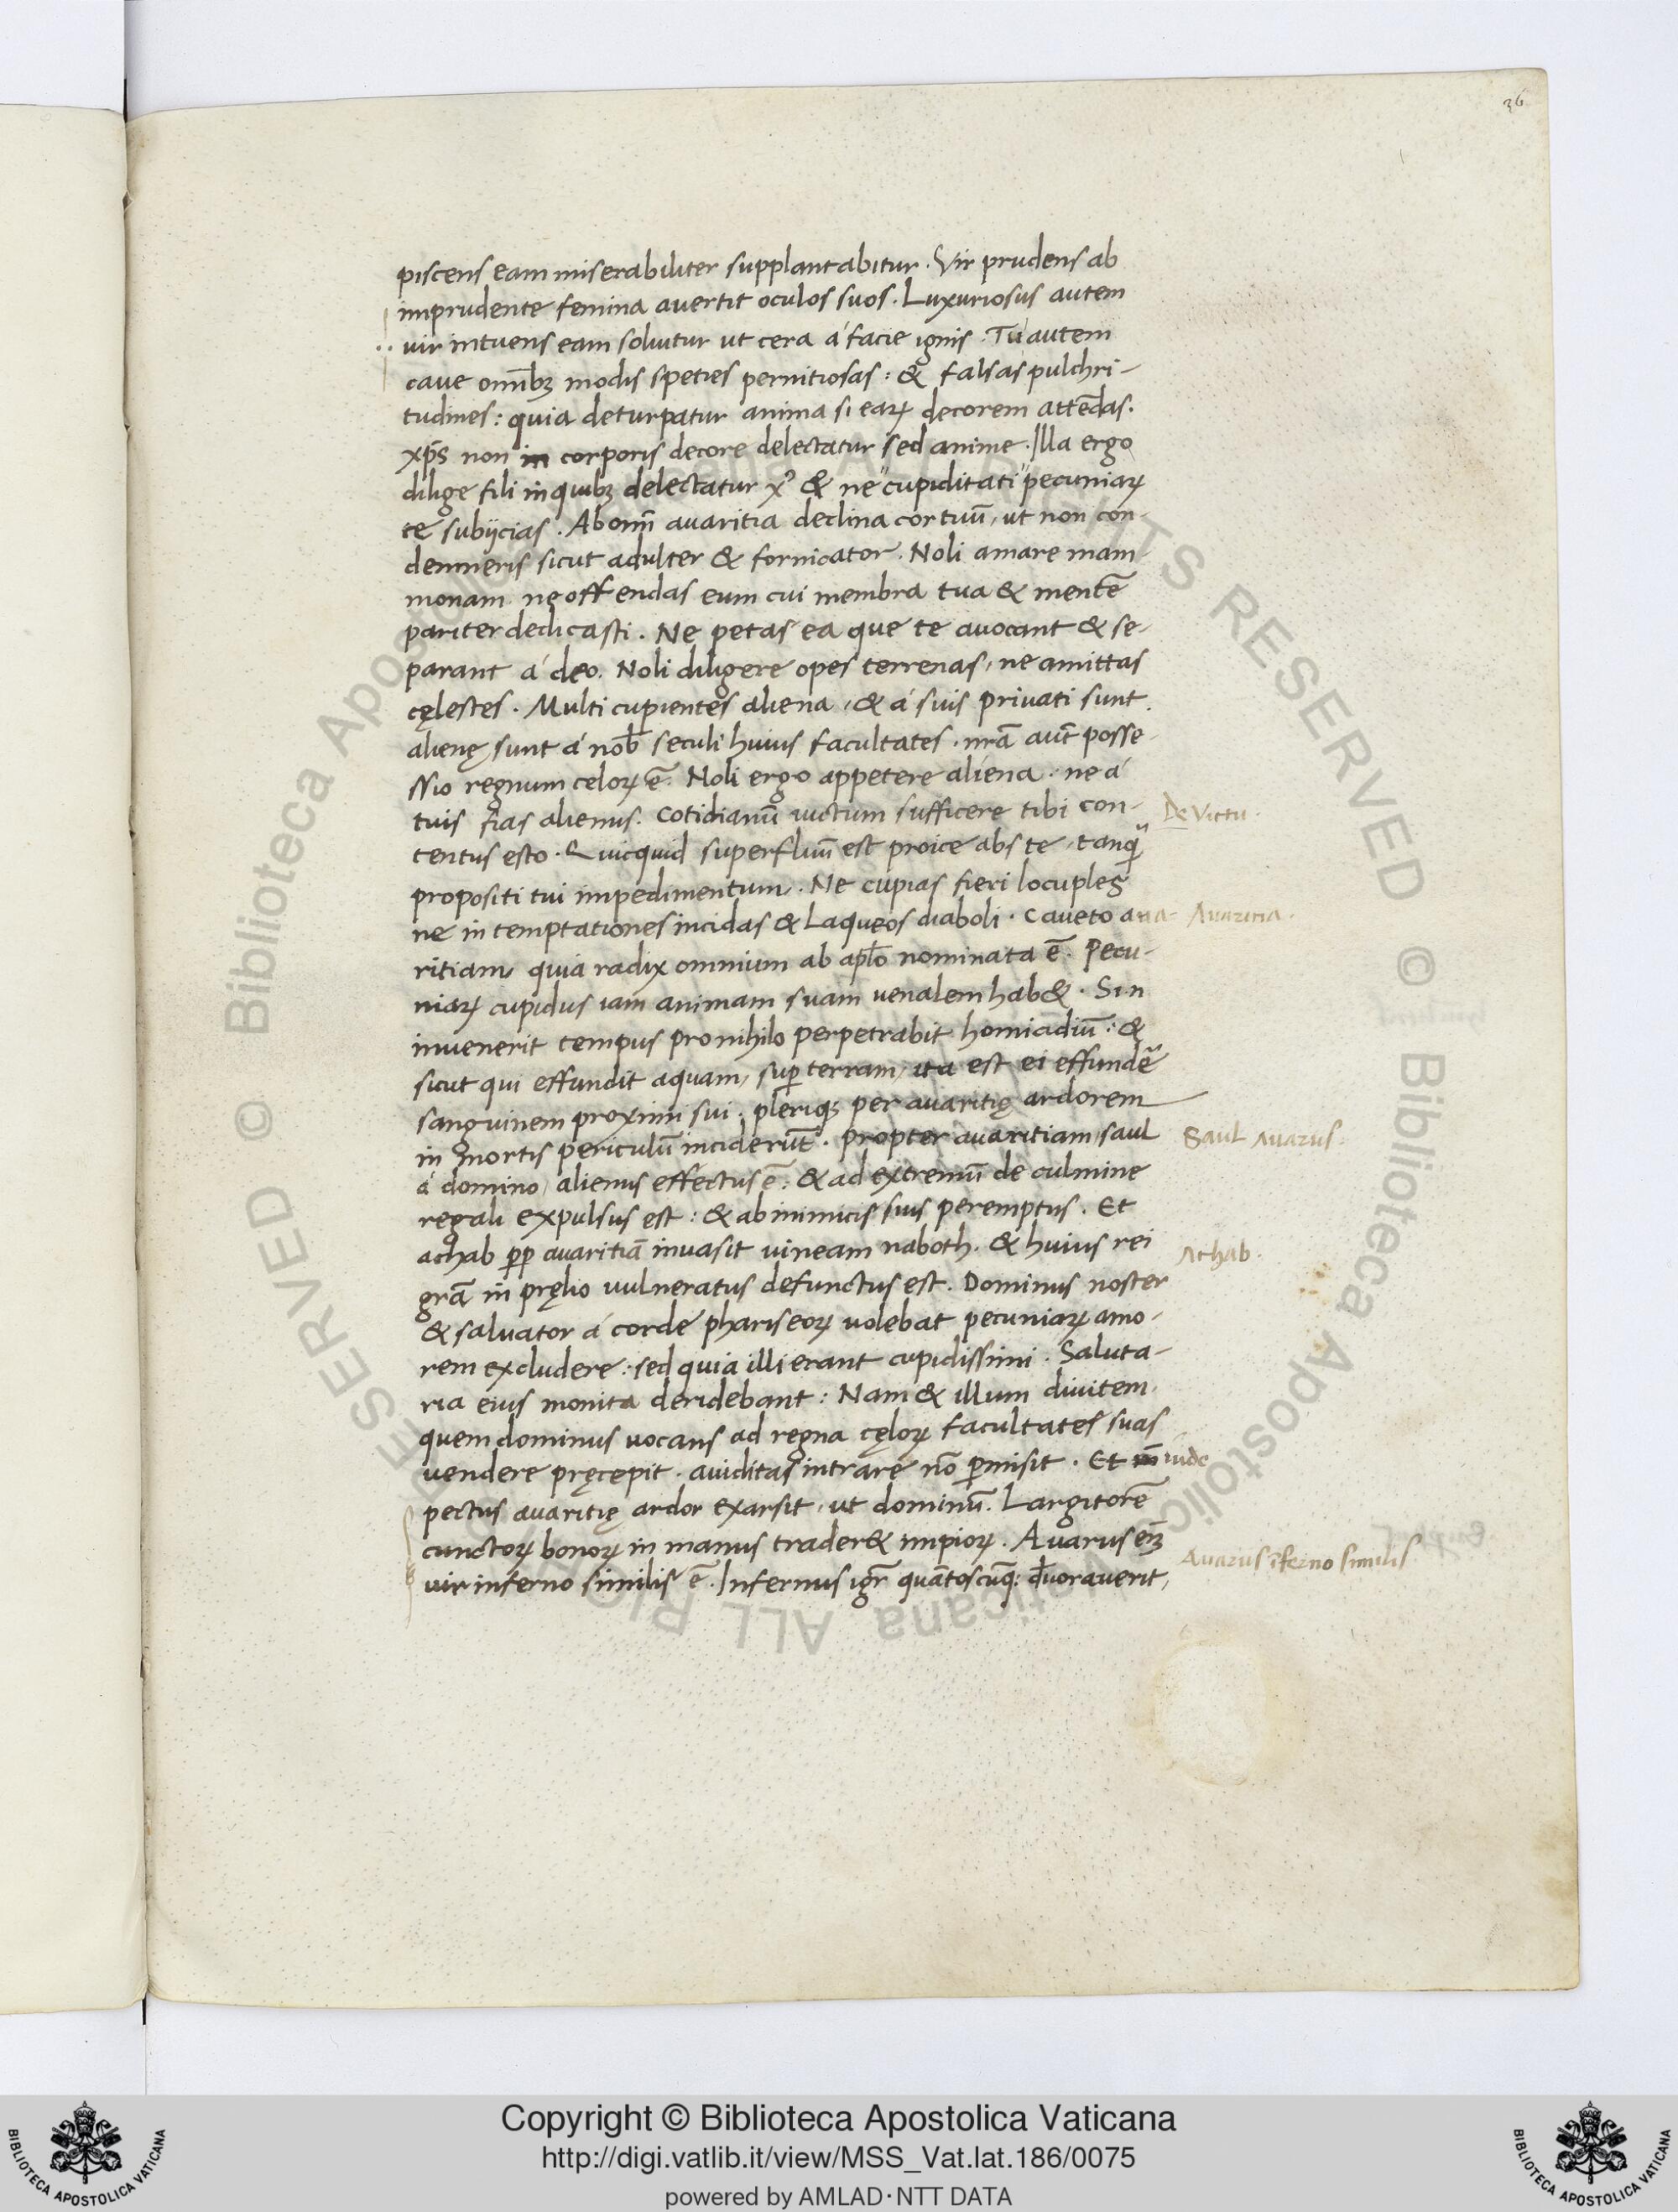 36
piscens eam miserabiliter supplantabitur. Vir prudens ab
imprudente femina avertit oculos suos. Luxuriosus autem
vir intuens eam solvitur ut cera á facie ignis. Tú autem
cave omībꝫ modis speties pernitiosas: & falsas pulchri-
tudines: quia deturpatur anima si eaꝝ decorem attēdas.
xp̄s non in corporis decore delectatur sed anime. Illa ergo
dilige fili in quibꝫ delectatur x᾽ & ne cupiditati pecuniaꝝ
te subijcias. Ab omī avaritia declina cor tuū, ut non con-
demneris sicut adulter & fornicator. Noli amare mam-
monam ne offendas eum cui membra tua & mentē
pariter dedicasti. Ne petas ea que te avocant & se-
parant á deo. Noli diligere opes terrenas, ne amittas
cęlestes. Multi cupientes aliena, & á suis privati sunt.
alienę sunt á nob̄ seculi huius facultates. nr̄a aūt posse-
ssio regnum celoꝝ ē. Noli ergo appetere aliena. ne á
tuis fias alienus. Cotidianū victum sufficere tibi con-
De Victu.
tentus esto. Quicquid superfluū est proice abs te, tanq̄
propositi tui impedimentum. Ne cupias fieri locuples
ne in temptationes incidas & laqueos diaboli. Caveto ava-
Avaritia.
ritiam, quia radix omnium ab ap̄lo nominata ē. Pecu-
niaꝝ cupidus iam animam suam venalem hab&. Si n
invenerit tempus pro nihilo perpetrabit homicidiū: &
sicut qui effundit aquam, suꝑ terram, ita est ei effundē
sanguinem proximi sui. pleriqꝫ per avaritię ardorem
in mortis periculū inciderūt. Propter avaritiam, saul
Saul Avarus.
á domino alienus effectus ē: & ad extremū de culmine
regali expulsus est: & ab inimicis suis peremptus. Et
achab ꝓp avaritiā invasit vineam naboth. & huius rei
Achab.
gr̄a in pręlio vulneratus defunctus est. Dominus noster
& salvator á corde phariseoꝝ volebat pecuniaꝝ amo-
rem excludere: sed quia illi erant cupidissimi. Saluta-
ria eius monita deridebant: Nam & illum divitem.
quem dominus vocans ad regna cęloꝝ facultates suas
vendere pręcepit. aviditas intrare nō ꝑmisit. Et in iude
pectus avaritię ardor exarsit, ut dominū. Largitorē
cunctoꝝ bonoꝝ in manus trader& impioꝝ. Avarus em̄
vir inferno similis ē. Infernus igr̄ quātoscūqꝫ dꝰvoraverit,
Avarus īferno similis
Copyright © Biblioteca Apostolica Vaticana
http://digi.vatlib.it/view/MSS_Vat.lat.186/0075
powered by AMLAD·NTT DATA
BIBLIOTECA APOSTOLICA VATICANA
BIBLIOTECA APOSTOLICA VATICANA
© Biblioteca Apostolica Vaticana ALL RIGHTS RESERVED